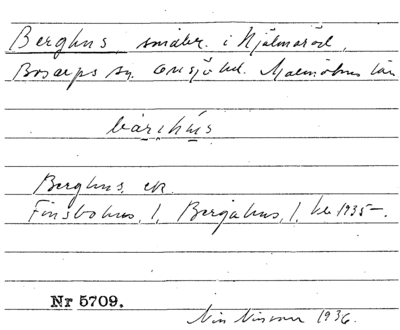 Berghus, småbr. i Hjälmaröd,
Bosarps sn. Onsjö hd. Malmöhus län
bàrihús
Berghus, ek
Finsbohus, 1, Bergahus, 1, 1935-.
Nr 5709.
Nils 1936.